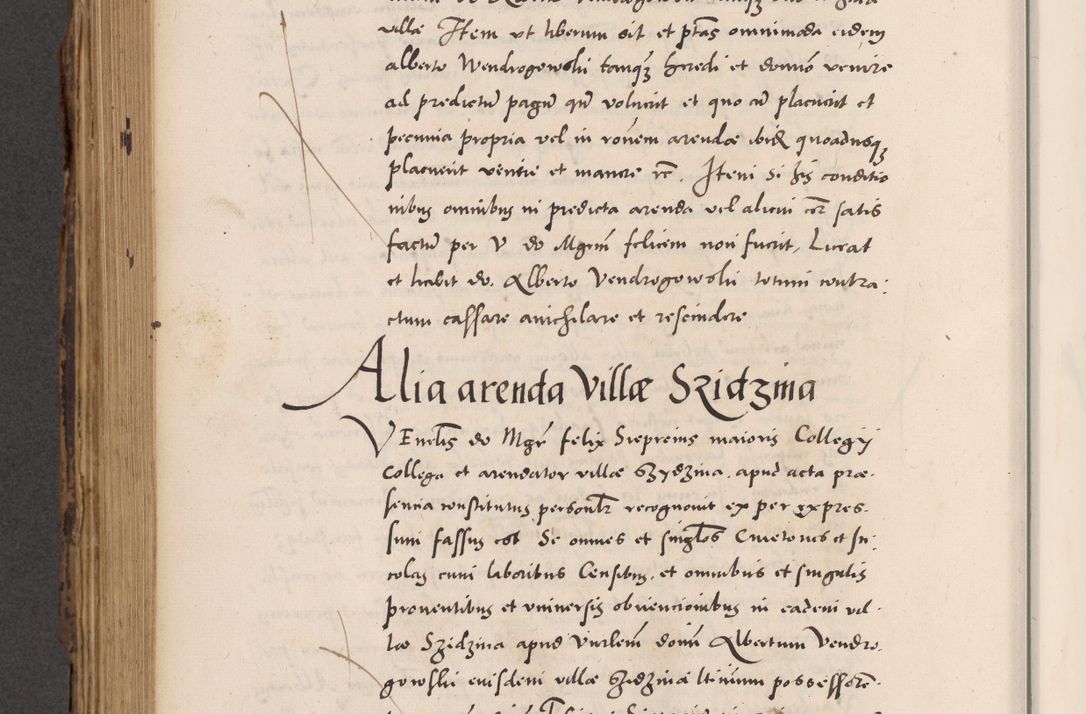 villæ Item vt liberum sit et ptãs omnimoda eidem
alberto Wendrogowski tanqȝ heredi et domĩo venire
ad predictũ pagũ qñ voluerit et quo cũ placuerit et
pecunia propria vel in rõnem arendæ ibidẽ quoadusqȝ
placuerit venire et manere rc. Item si his conditio
nibus omnibus in predicta arenda vel alicui satis
factũ per V do Mgrm felicem non fuerit, Liceat
et habet do. Alberto Vendrogowski totum contra-
ctum cassare anichilare et rescindere
Alia arenda Villæ Szidzina
VEnrlis do Mgr felix Sieprcius maioris Collegij
Collega et arendator villæ Szydzina, apud acta præ-
sencia constitutus personlr recognouit ex per expres-
sum fassus est Se omnes et singlos Cmetones et in-
colas cum laboribus Censibus, et omnibus et singulis
prouentibus et vniuersis obuencionibus in eadem vil-
læ Szidzina apud dominũ Albertum Vendro-
gowski eiusdem villæ Szidzinæ ltimum possessore-